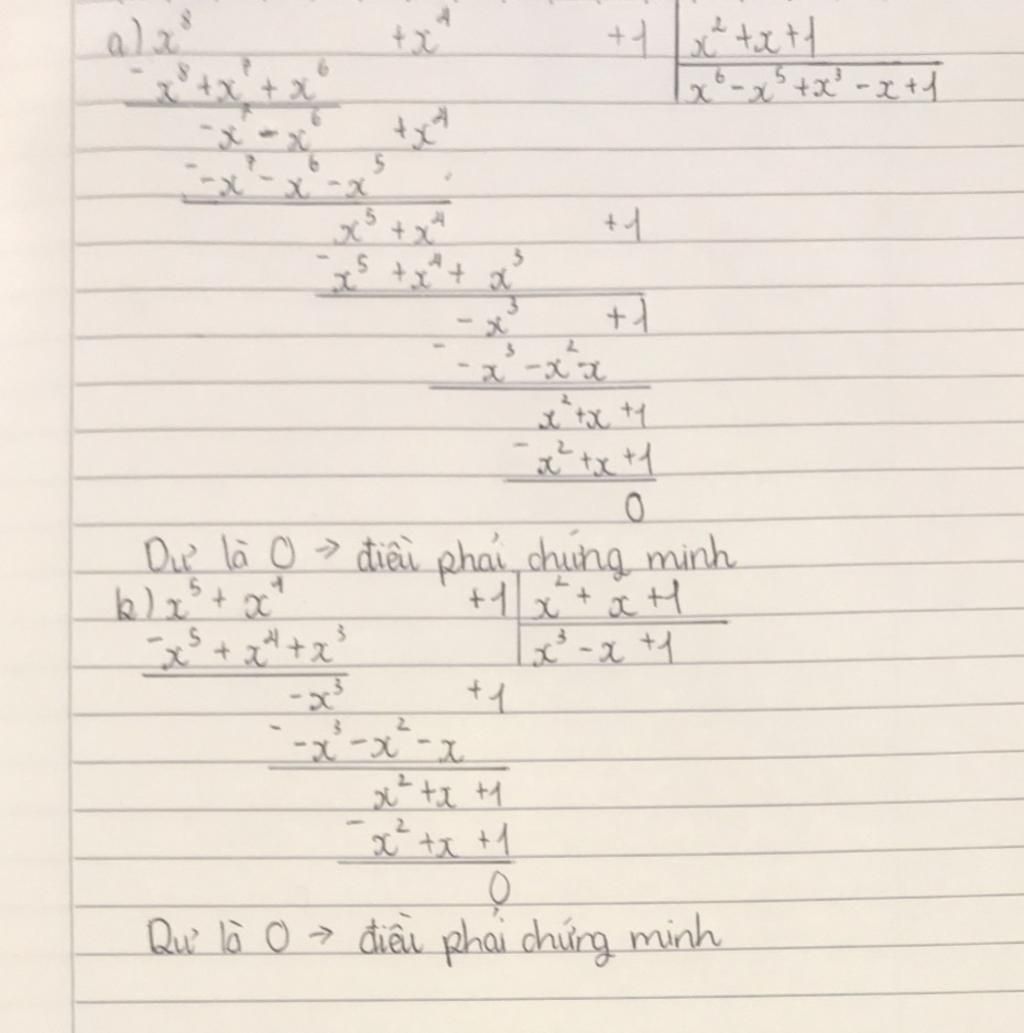 a) x⁸ +x⁴ +1 | x² +x+1
- x⁸ +x⁷ + x⁶ | x⁶ -x⁵ +x³ -x+1
-x⁷ - x⁶ +x⁴
- -x⁷ - x⁶ -x⁵
x⁵ +x⁴ +1
- x⁵ +x⁴ + x³
- x³ +1
- - x³ -x² -x
x² +x +1
- x² +x +1
0
Dư là 0 → điều phải chứng minh
b) x⁵ + x⁴ +1 | x² + x +1
- x⁵ + x⁴ +x³ | x³ - x +1
-x³ +1
- -x³ -x² - x
x² +x +1
- x² +x +1
0
Dư là 0 → điều phải chứng minh